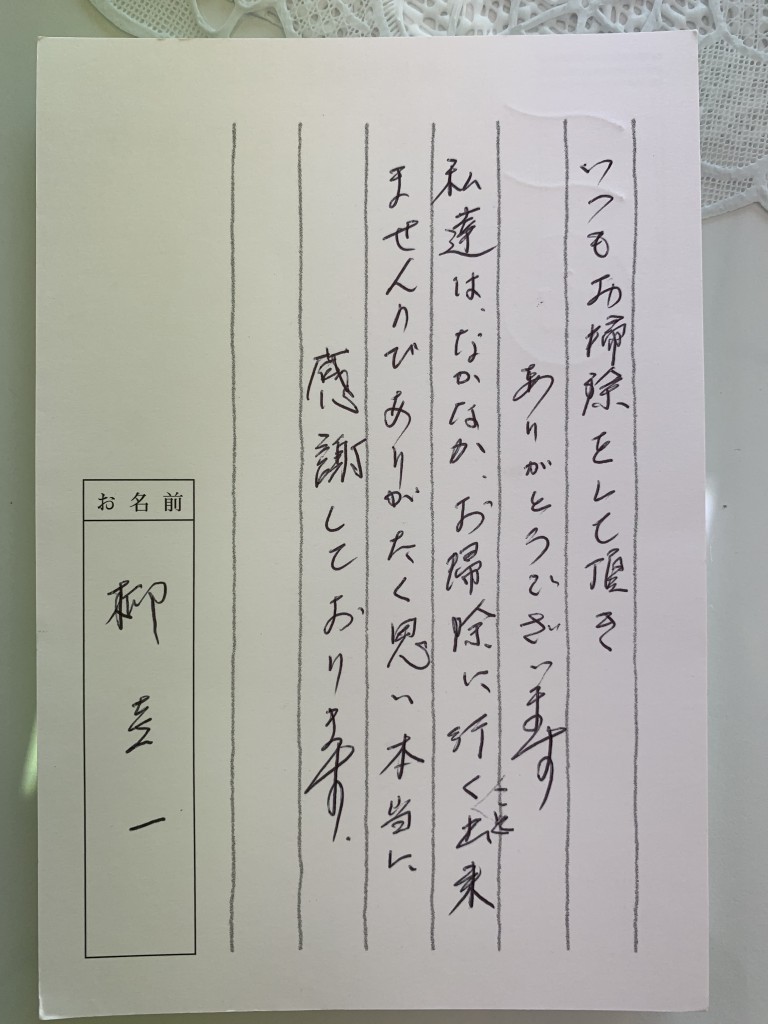 いつもお掃除をして頂き
ありがとうございます
私達は、なかなか、お掃除に行くこと出来
ませんのでありがたく思い本当に
感謝しております.
お名前
柳 圭一